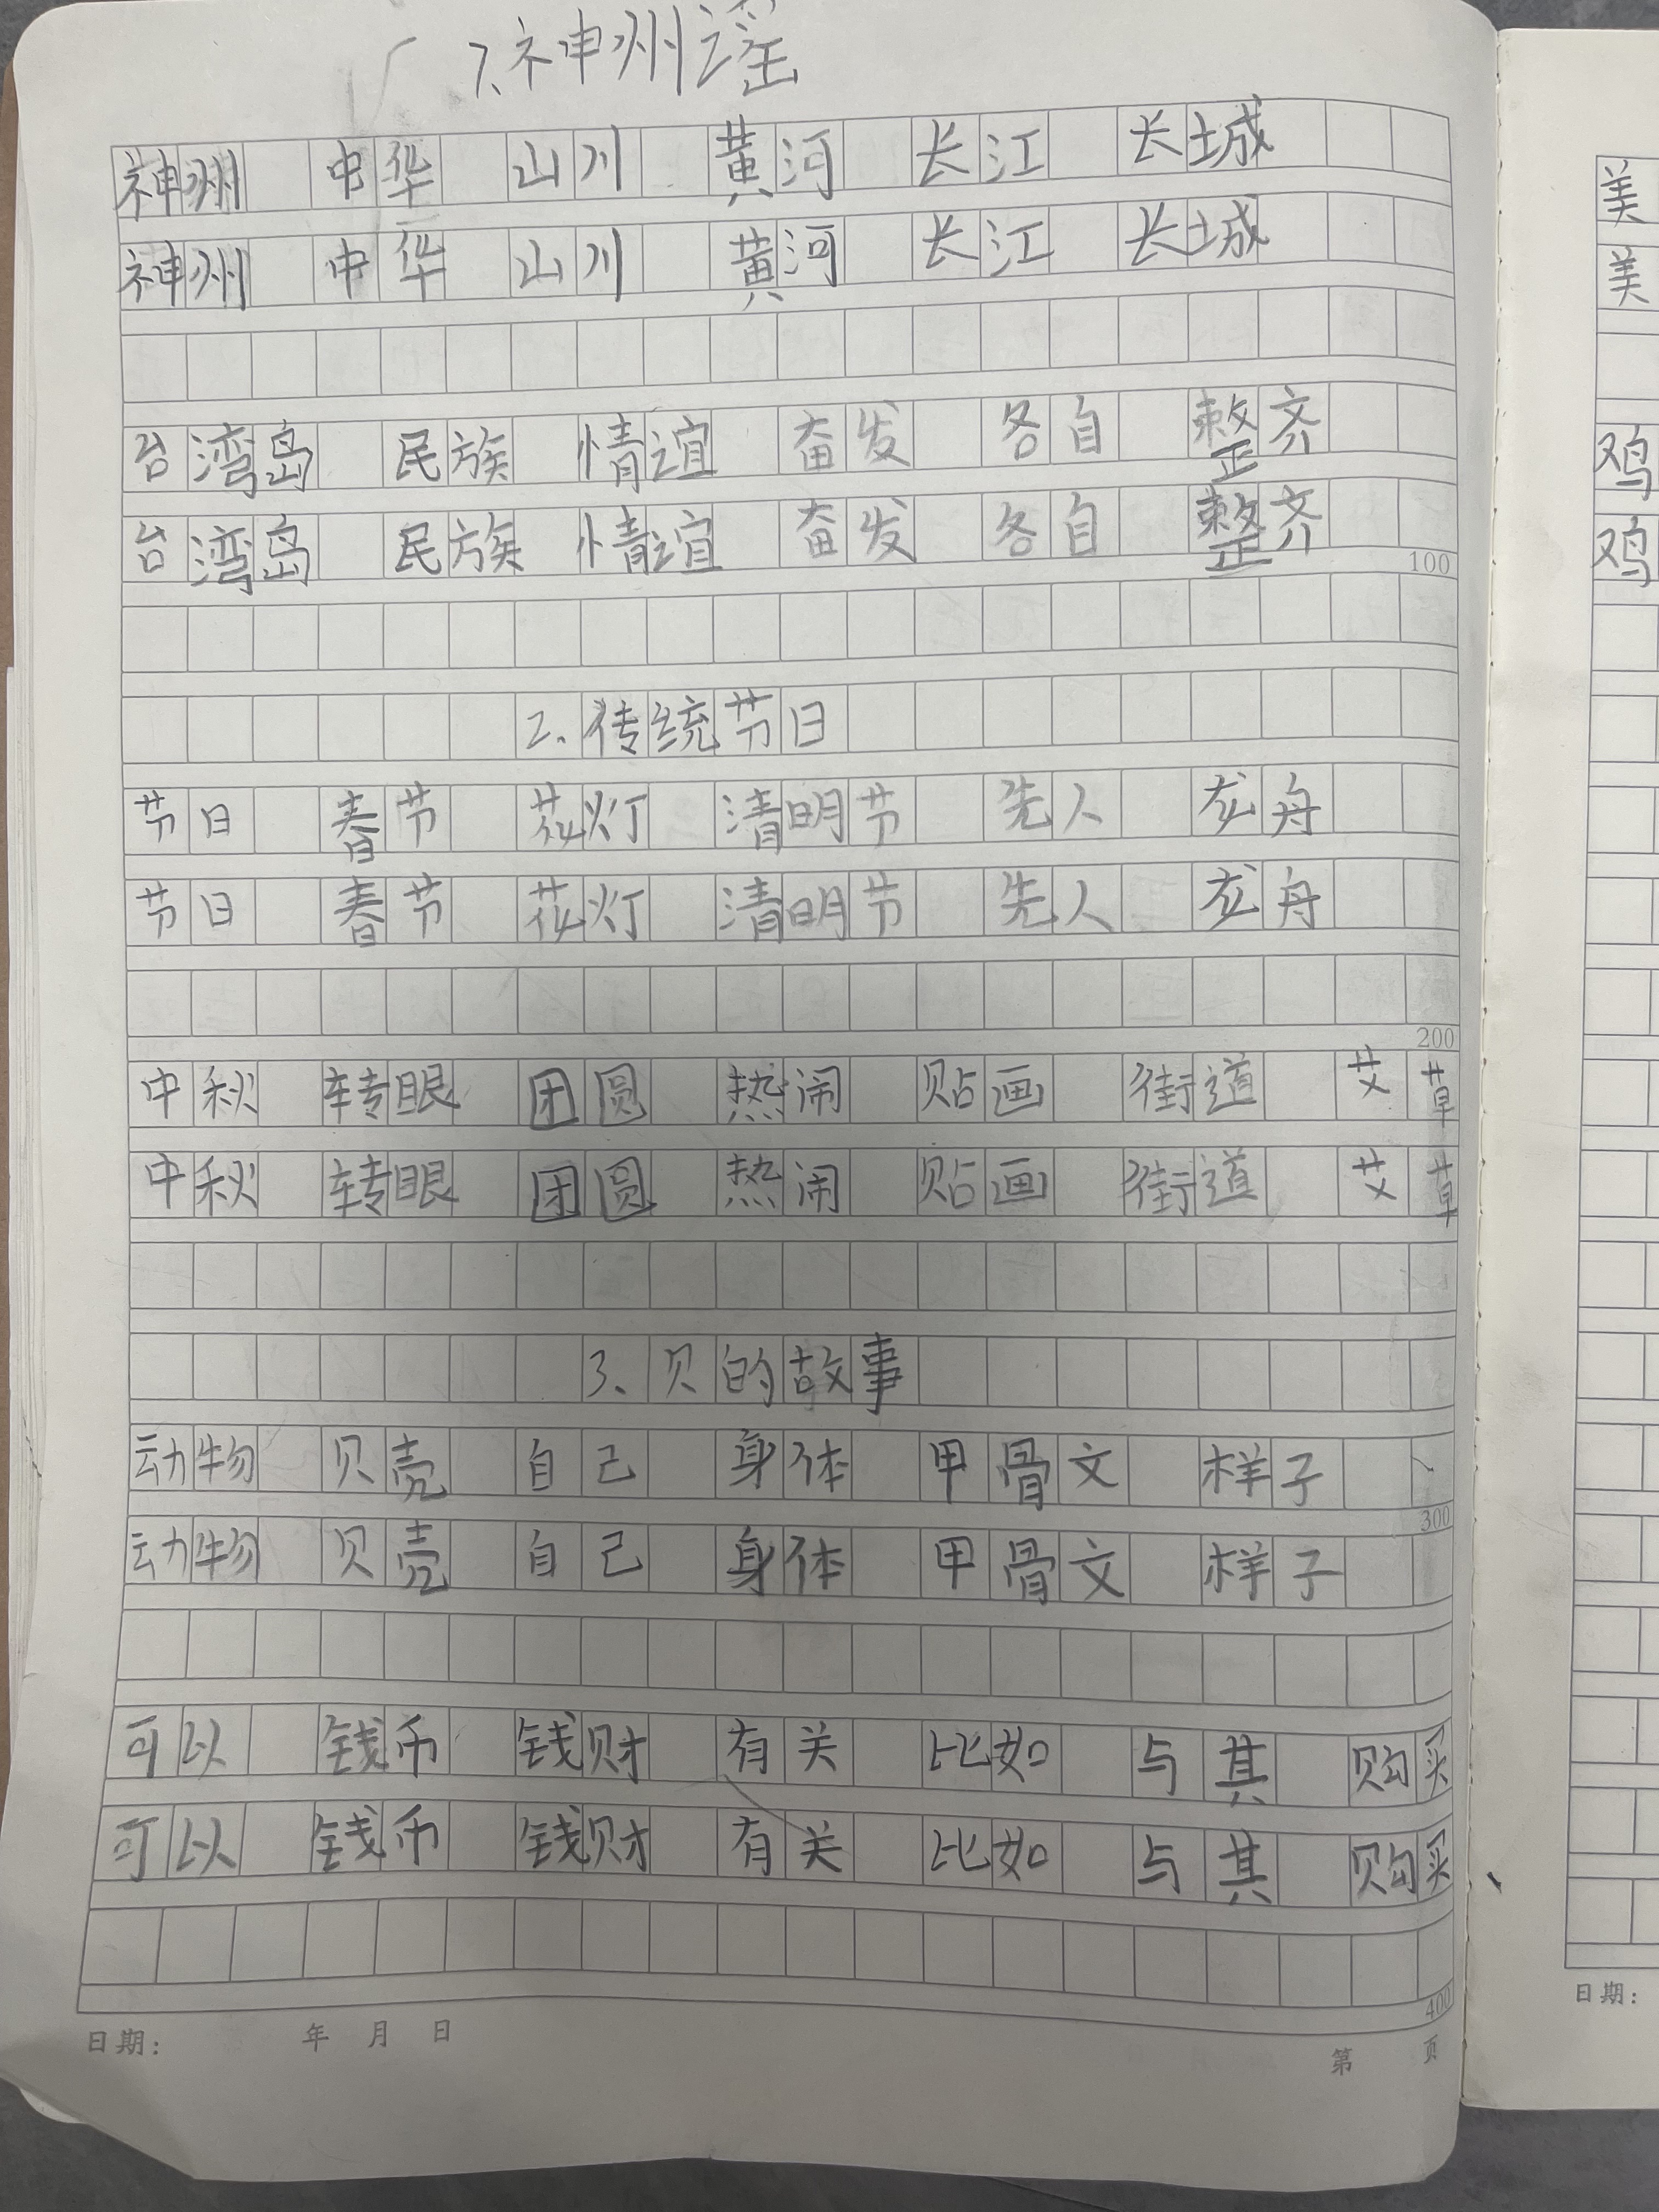 1.神州谣
神州 中华 山川 黄河 长江 长城
神州 中华 山川 黄河 长江 长城
台湾岛 民族 情谊 奋发 各自 整齐
台湾岛 民族 情谊 奋发 各自 整齐
100
2.传统节日
节日 春节 花灯 清明节 先人 龙舟
节日 春节 花灯 清明节 先人 龙舟
200
中秋 转眼 团圆 热闹 贴画 街道 艾草
中秋 转眼 团圆 热闹 贴画 街道 艾草
3、贝的故事
动物 贝壳 自己 身体 甲骨文 样子
300
动物 贝壳 自己 身体 甲骨文 样子
可以 钱币 钱财 有关 比如 与其 购买
可以 钱币 钱财 有关 比如 与其 购买
400
日期： 年 月 日
第 页
美
美
鸡
鸡
日期：